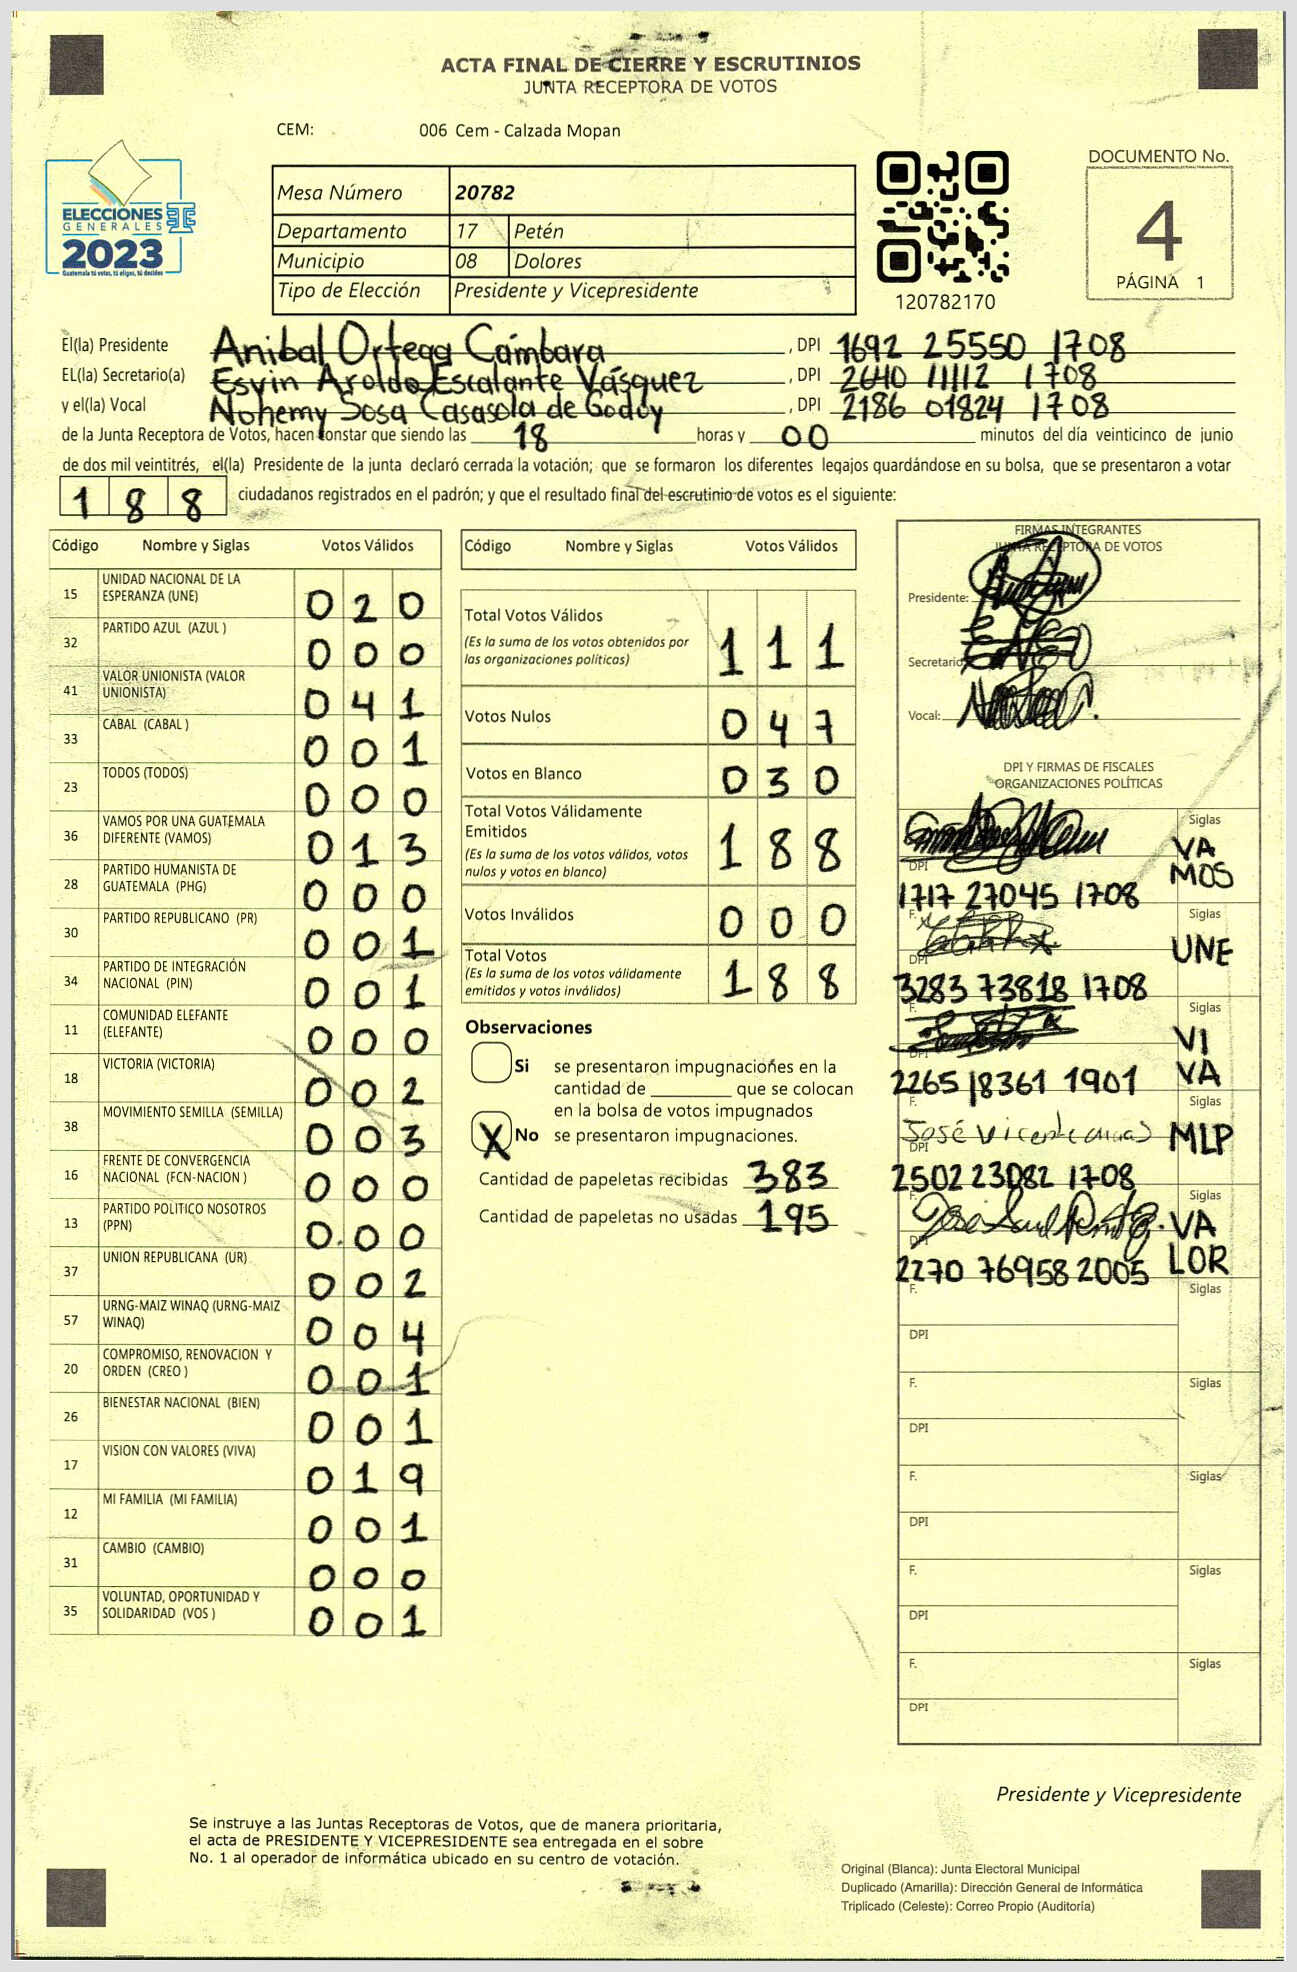 ACTA FINAL DE CIERRE Y ESCRUTINIOS
JUNTA RECEPTORA DE VOTOS
CEM: 006 Cem - Calzada Mopan
ELECCIONES
GENERALES
2023
Guatemala tú votas, tú eliges, tú decides
Mesa Número 20782
Departamento 17 Petén
Municipio 08 Dolores
Tipo de Elección Presidente y Vicepresidente
120782170
DOCUMENTO No.
4
PÁGINA 1
El(la) Presidente Anibal Ortega Cámbara , DPI 1692 25550 1708
EL(la) Secretario(a) Esvin Aroldo Escalante Vásquez , DPI 2640 11112 1708
y el(la) Vocal Nohemy Sosa Casasola de Godoy , DPI 2186 01824 1708
de la Junta Receptora de Votos, hacen constar que siendo las 18 horas y 00 minutos del día veinticinco de junio
de dos mil veintitrés, el(la) Presidente de la junta declaró cerrada la votación; que se formaron los diferentes legajos guardándose en su bolsa, que se presentaron a votar
188 ciudadanos registrados en el padrón; y que el resultado final del escrutinio de votos es el siguiente:
Código Nombre y Siglas Votos Válidos
15 UNIDAD NACIONAL DE LA ESPERANZA (UNE) 0 2 0
32 PARTIDO AZUL (AZUL ) 0 0 0
41 VALOR UNIONISTA (VALOR UNIONISTA) 0 4 1
33 CABAL (CABAL ) 0 0 1
23 TODOS (TODOS) 0 0 0
36 VAMOS POR UNA GUATEMALA DIFERENTE (VAMOS) 0 1 3
28 PARTIDO HUMANISTA DE GUATEMALA (PHG) 0 0 0
30 PARTIDO REPUBLICANO (PR) 0 0 1
34 PARTIDO DE INTEGRACIÓN NACIONAL (PIN) 0 0 1
11 COMUNIDAD ELEFANTE (ELEFANTE) 0 0 0
18 VICTORIA (VICTORIA) 0 0 2
38 MOVIMIENTO SEMILLA (SEMILLA) 0 0 3
16 FRENTE DE CONVERGENCIA NACIONAL (FCN-NACION ) 0 0 0
13 PARTIDO POLITICO NOSOTROS (PPN) 0 0 0
37 UNION REPUBLICANA (UR) 0 0 2
57 URNG-MAIZ WINAQ (URNG-MAIZ WINAQ) 0 0 4
20 COMPROMISO, RENOVACION Y ORDEN (CREO ) 0 0 1
26 BIENESTAR NACIONAL (BIEN) 0 0 1
17 VISION CON VALORES (VIVA) 0 1 9
12 MI FAMILIA (MI FAMILIA) 0 0 1
31 CAMBIO (CAMBIO) 0 0 0
35 VOLUNTAD, OPORTUNIDAD Y SOLIDARIDAD (VOS ) 0 0 1
Código Nombre y Siglas Votos Válidos
Total Votos Válidos 1 1 1
(Es la suma de los votos obtenidos por
las organizaciones politicas)
Votos Nulos 0 4 7
Votos en Blanco 0 3 0
Total Votos Válidamente
Emitidos 1 8 8
(Es la suma de los votos válidos, votos
nulos y votos en blanco)
Votos Inválidos 0 0 0
Total Votos 1 8 8
(Es la suma de los votos válidamente
emitidos y votos inválidos)
Observaciones
Si se presentaron impugnaciones en la
cantidad de ________ que se colocan
en la bolsa de votos impugnados
X No se presentaron impugnaciones.
Cantidad de papeletas recibidas 383
Cantidad de papeletas no usadas 195
FIRMAS INTEGRANTES
JUNTA RECEPTORA DE VOTOS
Presidente:
Secretario
Vocal:
DPI Y FIRMAS DE FISCALES
ORGANIZACIONES POLÍTICAS
Siglas VAMOS
DPI 1717 27045 1708
F. Siglas UNE
DPI 3283 73818 1708
F. Siglas VIVA
DPI 2265 18361 1901
F. José Vicente Siglas MLP
DPI 2502 23082 1708
F. Siglas VALOR
DPI 2270 76958 2005
F. Siglas
DPI
F. Siglas
DPI
F. Siglas
DPI
F. Siglas
DPI
F. Siglas
DPI
Presidente y Vicepresidente
Se instruye a las Juntas Receptoras de Votos, que de manera prioritaria,
el acta de PRESIDENTE Y VICEPRESIDENTE sea entregada en el sobre
No. 1 al operador de informática ubicado en su centro de votación.
Original (Blanca): Junta Electoral Municipal
Duplicado (Amarilla): Dirección General de Informática
Triplicado (Celeste): Correo Propio (Auditoría)